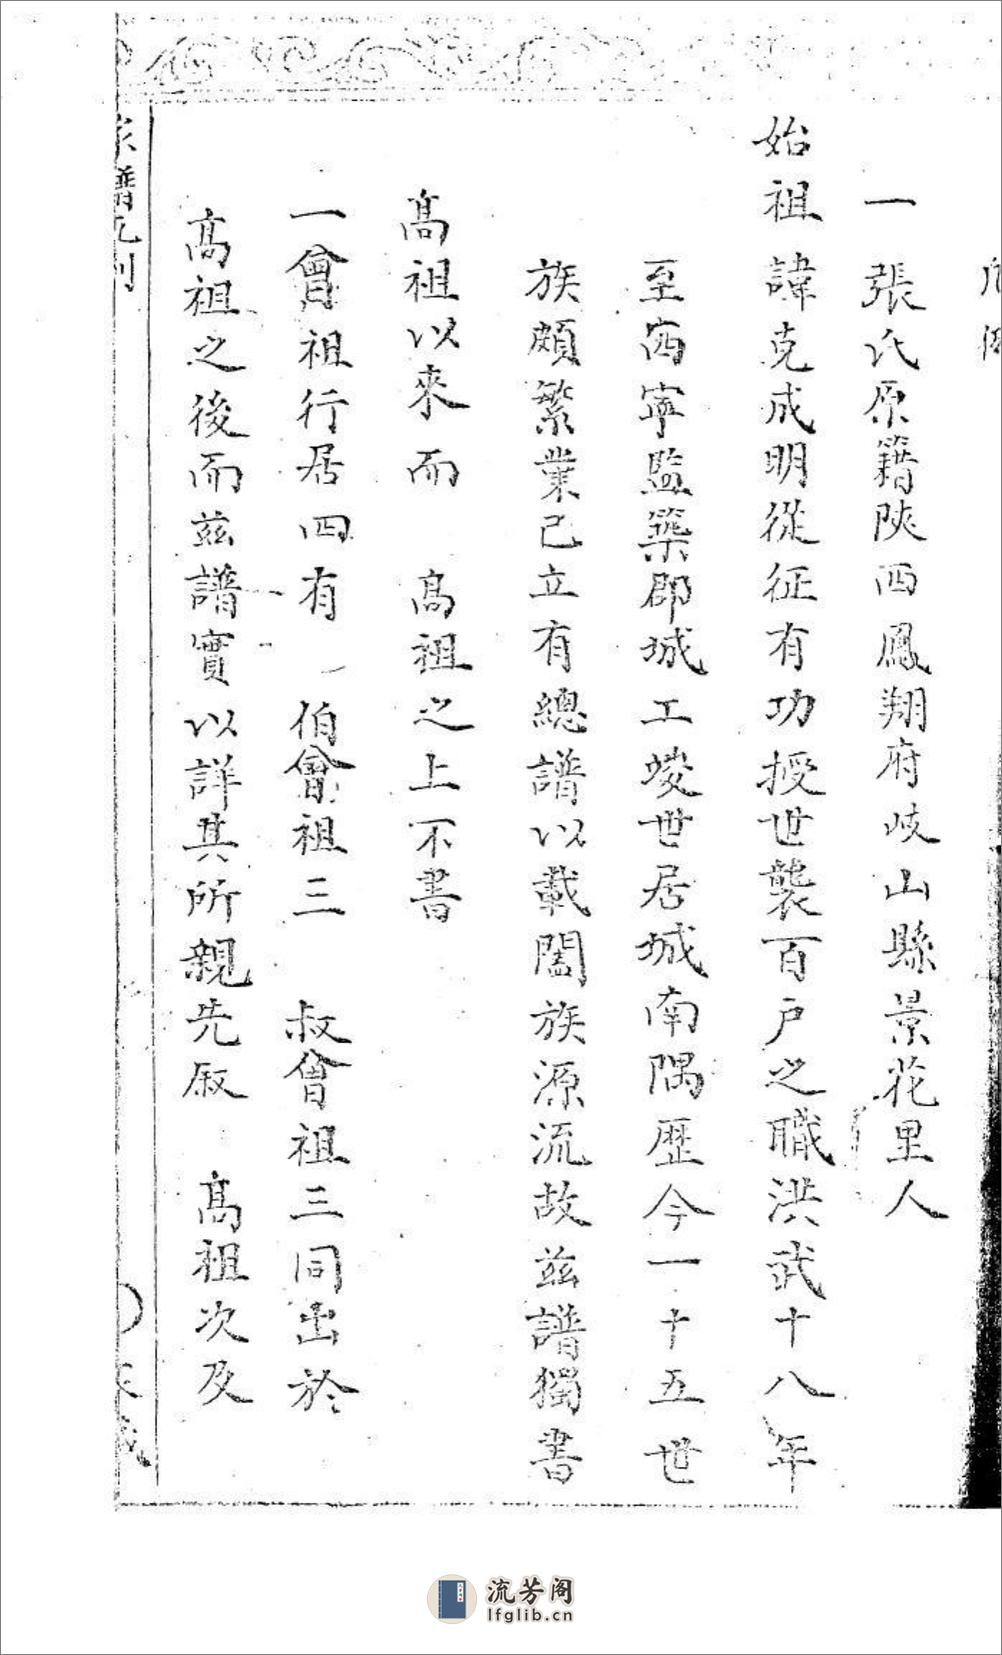 凡例
一張氏原籍陝西鳳翔府岐山縣景花里人
始祖諱克成明從征有功授世襲百戶之職洪武十八年
至西寧監築郡城工竣世居城南隅歷今一十五世
族頗繁業已立有總譜以載闔族源流故茲譜獨書
高祖以來而 高祖之上不書
一曾祖行居四有 伯曾祖三 叔曾祖三同出於
高祖之後而茲譜實以詳其所親先敘 高祖次及
家譜凡例
流芳阁
lfglib.cn